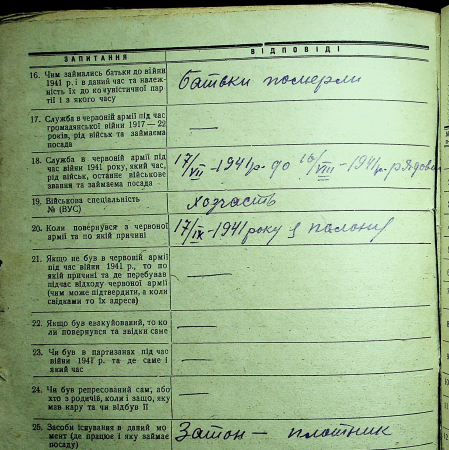 ЗАПИТАННЯ
ВІДПОВІДІ
16. Чим займались батьки до війни
1941 р. і в даний час та належ-
ність їх до комуністичної пар-
тії і з якого часу
батьки померли
17. Служба в червоній армії під час
громадянської війни 1917—22
років, рід військ та займаєма
посада
—
18. Служба в червоній армії під
час війни 1941 року, який час,
рід військ, останнє військове
звання та займаєма посада
17/VII – 1941 р. до 16/VIII – 1941 р. рядовой
19. Військова спеціальність
№ (ВУС)
хозчасть
20. Коли повернувся з червоної
армії та по якій причині
17/IX – 1941 року з полону
21. Якщо не був в червоній армії
під час війни 1941 р., то по
якій причині та де перебував
підчас відходу червоної армії
(чим може підтвердити, а коли
свідками то їх адреса)
—
22. Якщо був евакуйований, то ко-
ли повернувся та звідки саме
—
23. Чи був в партизанах під час
війни 1941 р. та де саме і
який час
—
24. Чи був репресований сам, або
хто з родичів, коли і защо, яку
мав кару та чи відбув її
—
25. Засоби існування в даний мо-
мент (де працює і яку займає
посаду)
Затон – плотник